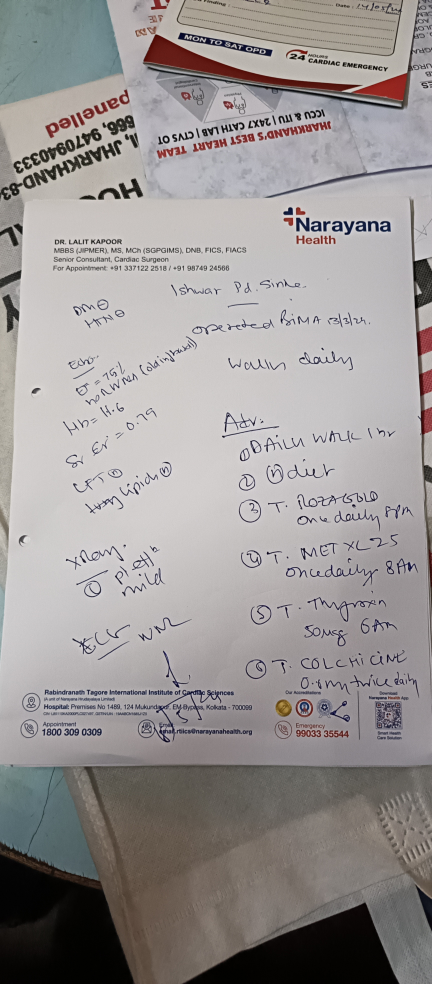 Date: 14/05/24
MON TO SAT OPD
24 HOURS
CARDIAC EMERGENCY
JHARKHAND'S BEST HEART TEAM
ICCU & ITU | 24X7 CATH LAB | CTVS OT
panelled
666, 9470940333
JHARKHAND-83
Narayana
Health
DR. LALIT KAPOOR
MBBS (JIPMER), MS, MCh (SGPGIMS), DNB, FICS, FIACS
Senior Consultant, Cardiac Surgeon
For Appointment: +91 337122 2518 / +91 98749 24566
Ishwar Pd. Sinha
DM ⊖
HTN ⊖
operated BIMA 13/3/24.
Walks daily
Echo
EF = 75%
Hb = 11.6
Sr Cr = 0.79
LFT (N)
lipid (N)
Xray.
(L) Pl eff
mild
ECG WNL
Adv:
① DAILY WALK 1 hr
② (N) diet
③ T. ROZAGOLD
once daily 8PM
④ T. MET XL 25
once daily 8AM
⑤ T. Thyroxin
50mcg 6AM
⑥ T. COLCHICINE
twice daily
Rabindranath Tagore International Institute of Cardiac Sciences
(A unit of Narayana Hrudayalaya Limited)
Hospital: Premises No 1489, 124 Mukundapur, EM-Bypass, Kolkata - 700099
Appointment
1800 309 0309
Email
Our Accreditations
Emergency
99033 35544
Download
Narayana Health App
Smart Health
Care Solution